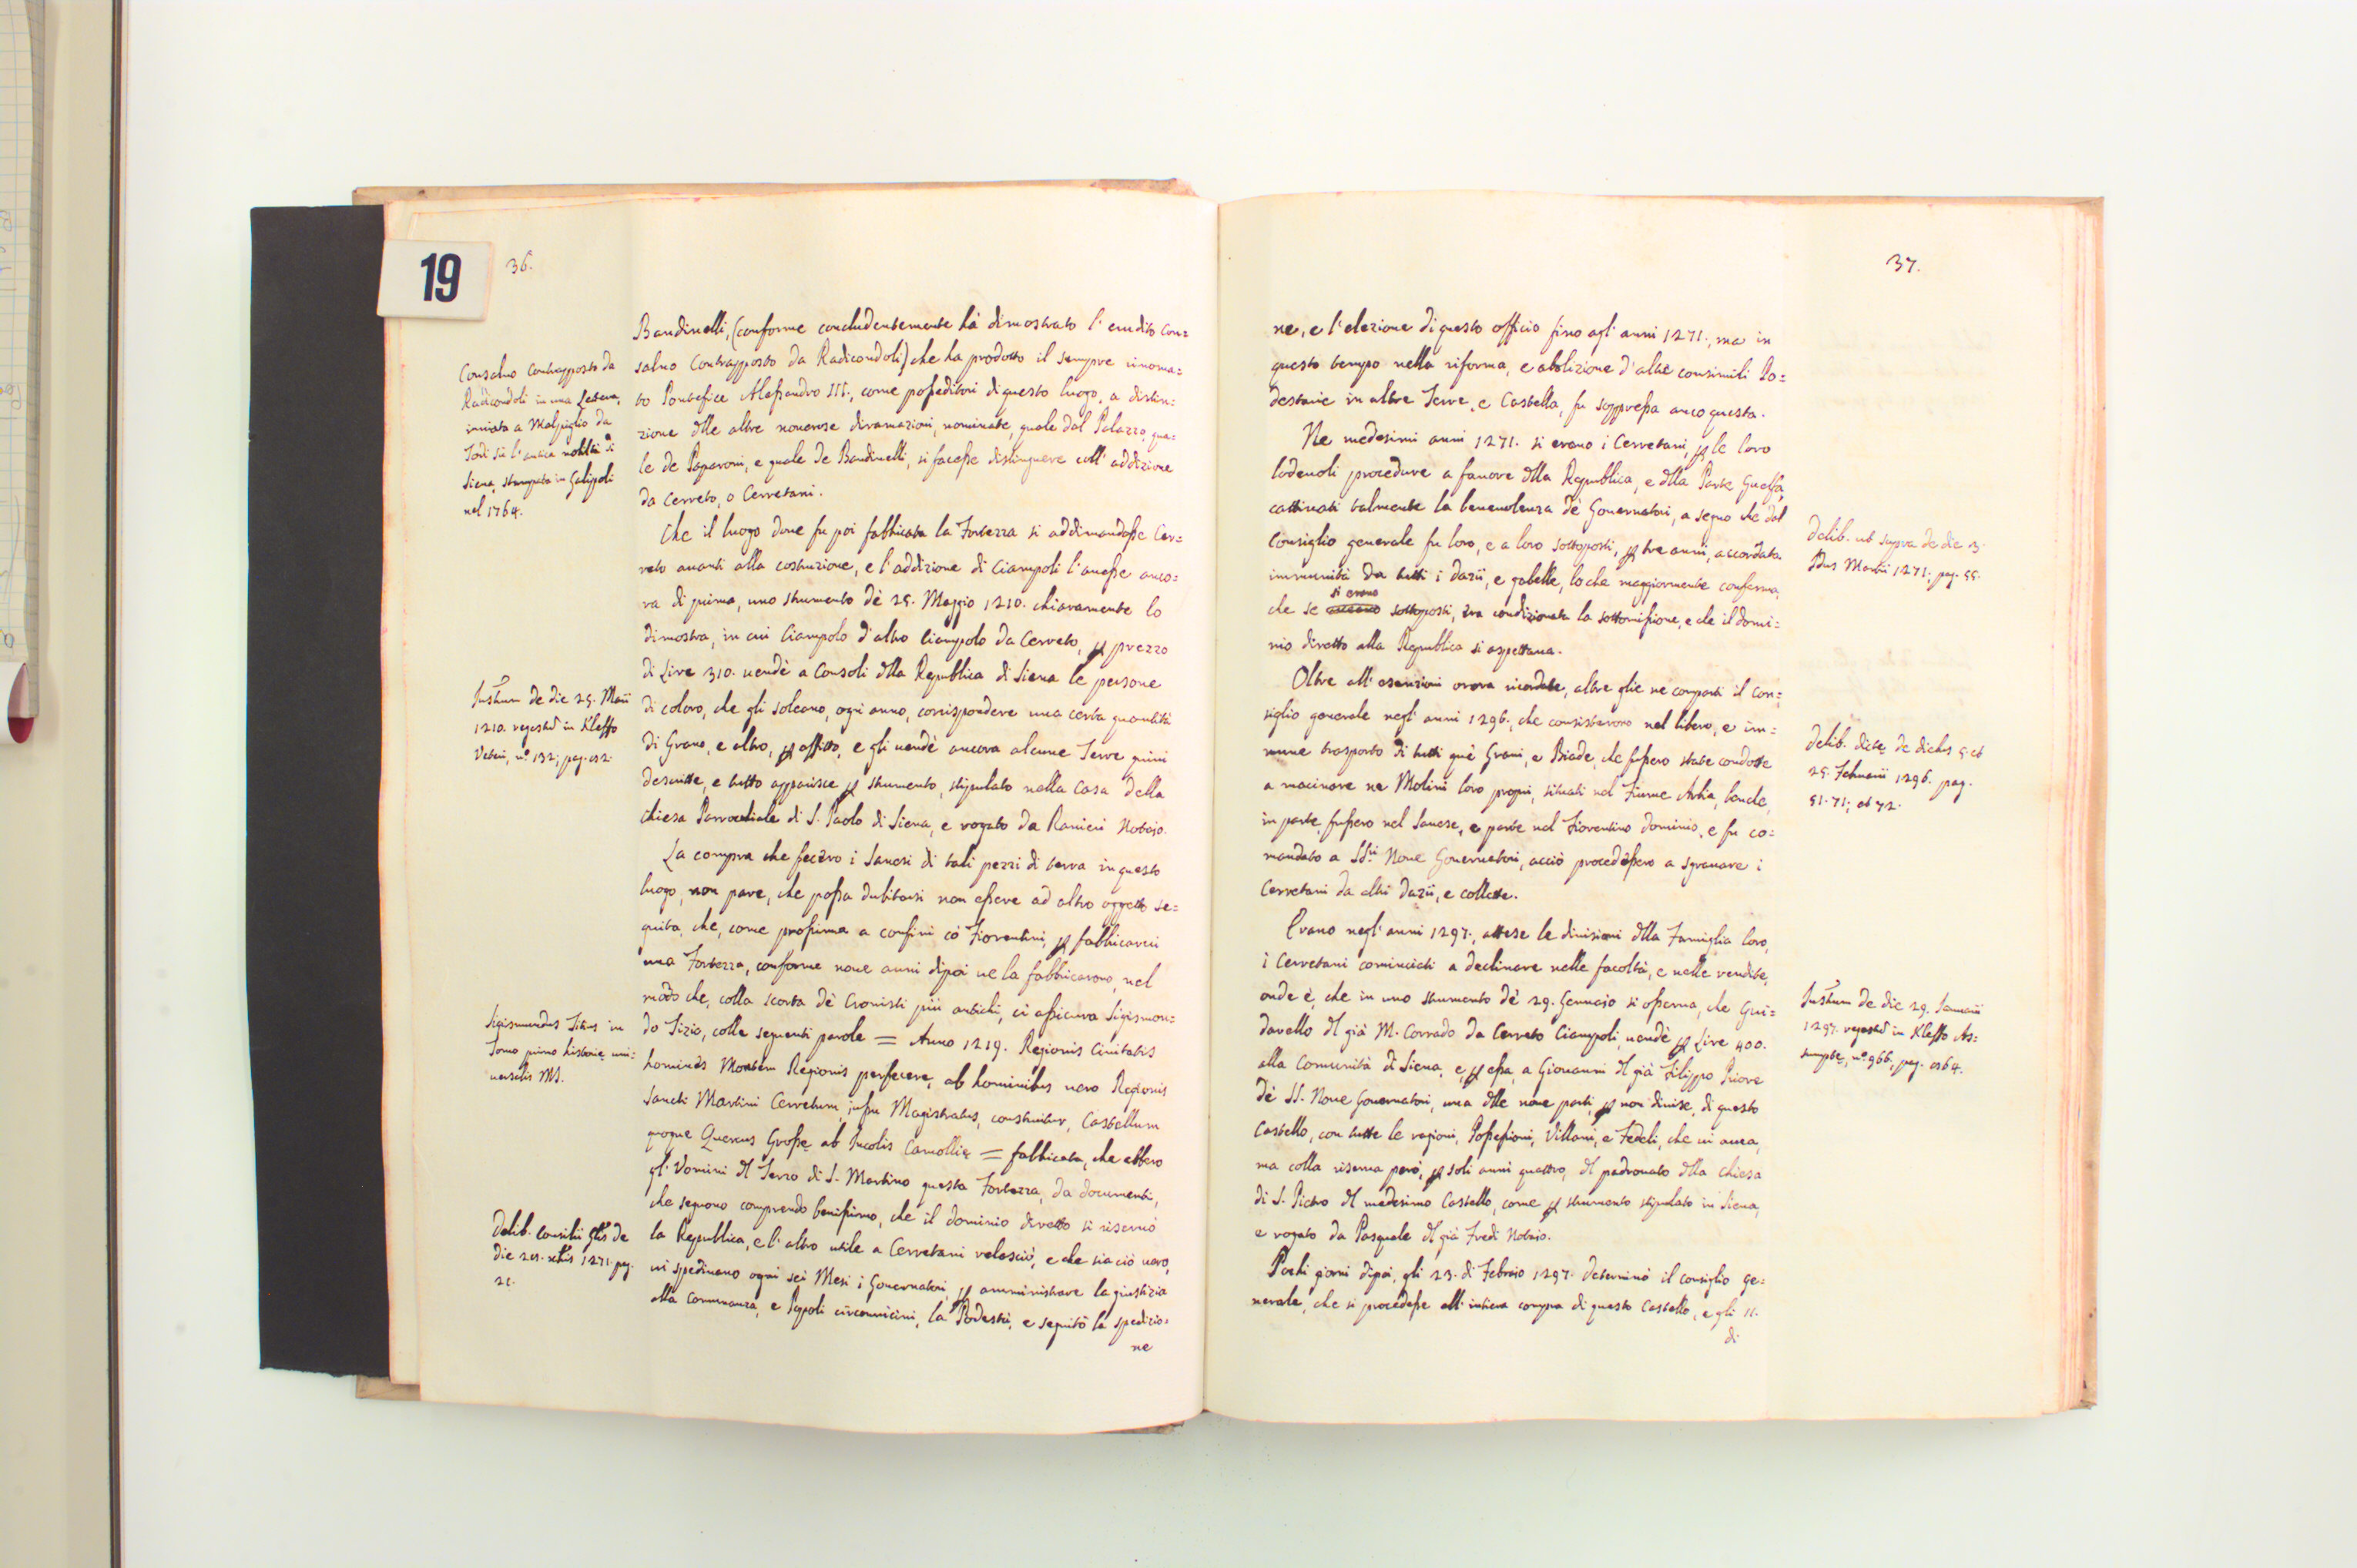 19
36.
Bandinelli, (conforme concludentemente hà dimostrato l'erudito Con=
saluo Contrapposto da Radicondoli) che ha prodotto il sempre rinoma=
to Pontefice Alessandro III., come posseditori di questo luogo, a distin=
zione dlle altre nonerose diramazioni, nominate, quale dal Palazzo, qua=
le de Paparoni, e quale de Bandinelli, si facesse distinguere coll'addizione
da Cerreto, o Cerretani.
Che il luogo doue fu poi fabbricata la Fortezza si addimandasse Cer=
reto auanti alla costruzione, e l'addizione di Ciampoli l'auesse anco=
ra di prima, uno strumento dè 25. Maggio 1210. chiaramente lo
dimostra, in cui Ciampolo d'altro Ciampolo da Cerreto, p prezzo
di Lire 310. uendè a Consoli dlla Republica di Siena le persone
di coloro, che gli soleano, ogni anno, corrispondere una certa quantità
di Grano, e altro, p affitto, e gli uendè ancora alcune Terre quiui
descritte, e tutto apparisce p strumento, stipulato nella Casa della
Chiesa Parrochiale di S. Paolo di Siena, e rogato da Ranieri Notaio.
La compra che fecero i Sanesi di tali pezzi di terra in questo
luogo, non pare, che possa dubitarsi non essere ad altro oggetto se=
guita, che, come prossima a confini cò Fiorentini, p fabbricarui
una Fortezza, conforme noue anni dipoi ue la fabbricarono, nel
modo che, colla scorta dè Cronisti più antichi, ci assicura Sigismon=
do Tizio, colle seguenti parole = Anno 1219. Regionis Ciuitatis
homines Montem Regionis perfecere, ab hominibus uero Regionis
Sancti Martini Cerretum iussu Magistratus, construitur, Castellum
quoque Quercus Grosse ab Incolis Camollie = fabbricata, che ebbero
gl'Vomini dl Terzo di S. Martino questa Fortezza, da documenti,
che seguono comprendo benissimo, che il dominio diretto si riseruò
la Republica, e l'altro utile a Cerretani relasciò, e che sia ciò uero,
ui spediuano ogni sei Mesi i Gouernatori, p amministrare la giustizia
alla Comunanza, e Popoli circonuicini, la Podestà, e seguitò la spedizio=
ne
Consaluo Contrapposto da
Radicondoli in una Lettera,
inuiata a Malpiglio da
Todi sù l'antica nobiltà di
Siena, stampata in Galipoli
nel 1764.
Instrum de die 25. Maii
1210. registd in Kleffo
Veteri, n.º 132; pag.
Sigismundus Titius in
Tomo primo historie uni=
uersalis MS.
Delib. Consilii Glis de
die 1271 pag.
21.
37.
ne, e l'elezione di questo officio fino agl'anni 1271., ma in
questo tempo nella riforma, e abolizione d'altre consimili Po=
destarie in altre Terre, e Castella, fu soppressa anco questa.
Ne medesimi anni 1271. si erano i Cerretani, p le loro
lodeuoli procedure a fauore dlla Republica, e dlla Parte Guelfa,
cattiuati talmente la beneuolenza dè Gouernatori, a segno che dal
Consiglio generale fu loro, e a loro sottoposti, p tre anni, accordata
immunità da tutti i dazii, e gabelle, lo che maggiormente conferma,
si erano
che se sottoposti, era condizionata la sottomissione, e che il domi=
nio diretto alla Republica si aspettaua.
Oltre all'esenzioni orora ricordate, altre glie ne compartì il Con=
siglio generale negl'anni 1296., che consisterono nel libero, e im=
mune trasporto di tutti què Grani, e Biade, che fussero state condotte
a macinare ne Molini loro propri, situati nel Fiume Arbia, bonche,
in parte fussero nel Sanese, e parte nel Fiorentino dominio, e fu co=
mandato a SS.ri Noue Gouernatori, acciò procedessero a sgrauare i
Cerretani da altri dazii, e collette.
Erano negl'anni 1297., attese le diuisioni dlla Famiglia loro,
i Cerretani cominciati a declinare nelle facoltà, e nelle rendite,
onde è, che in uno strumento dè 29. Gennaio si osserua, che Gui=
darello dl già M. Corrado da Cerreto Ciampoli, uendè p Lire 400.
alla Comunità di Siena, e, p essa, a Giouanni dl già Filippo Priore
dè SS. Noue Gouernatori, una dlle noue parti, p non diuise, di questo
Castello, con tutte le ragioni, Possessioni, Villani, e Fedeli, che ui auea,
ma colla riserua però, p soli anni quattro, dl padronato dlla Chiesa
di S. Pietro dl medesimo Castello, come p strumento stipulato in Siena,
e rogato da Pasquale dl già Fredi Notaio.
Pochi giorni dipoi, gli 23. di Febraio 1297. determinò il consiglio ge=
nerale, che si procedesse all'intiera compra di questo Castello, e gli 11.
di
Delib. ut supra de die 3.
Mus Martii 1271; pag. 55.
Delib. dicte de diebus 5. et
25. Februarii 1296. pag.
51. 71; et 72.
Instrum de die 29. Januarii
1297. registd in Kleffo As=
sumpte, n.º 966., pag.